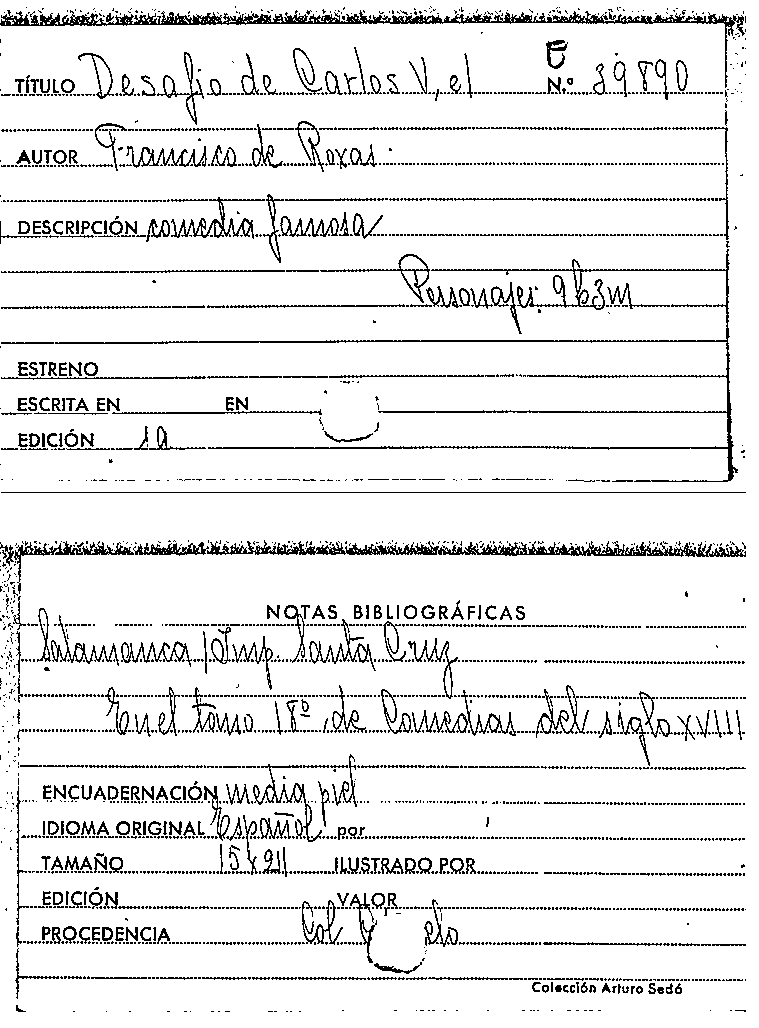 TÍTULO Desafio de Carlos V, el N.º 39890
AUTOR Francisco de Roxas.
DESCRIPCIÓN comedia famosa
Personajes: 9h3m
ESTRENO
ESCRITA EN EN
EDICIÓN
NOTAS BIBLIOGRÁFICAS
Salamanca / Imp. Santa Cruz
En el tomo 18º de Comedias del siglo XVIII
ENCUADERNACIÓN media piel
IDIOMA ORIGINAL Español por
TAMAÑO 15x21 ILUSTRADO POR
EDICIÓN VALOR
PROCEDENCIA Col
Colección Arturo Sedó